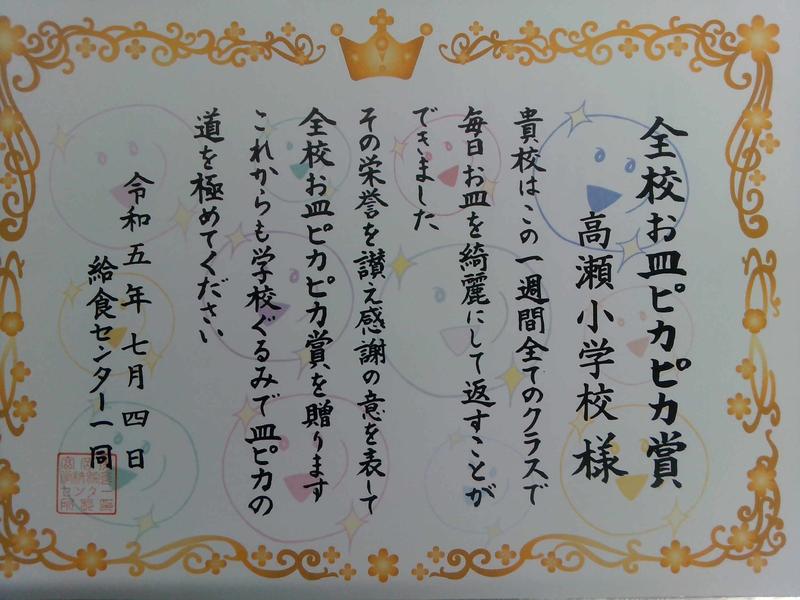 全校お皿ピカピカ賞
高瀬小学校様
貴校はこの一週間全てのクラスで
毎日お皿を綺麗にして返すことが
できました
その栄誉を讃え感謝の意を表して
全校お皿ピカピカ賞を贈ります
これからも学校ぐるみで皿ピカの
道を極めてください
令和五年七月四日
給食センター一同